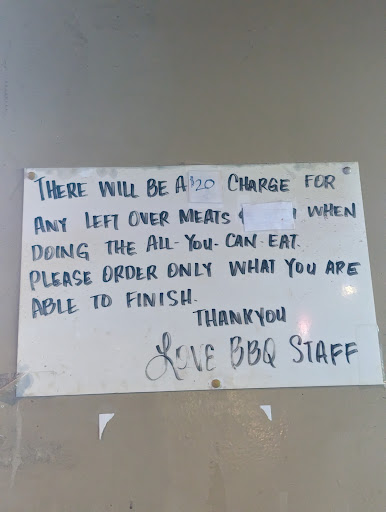 THERE WILL BE A $20 CHARGE FOR
ANY LEFT OVER MEATS WHEN
DOING THE ALL-YOU-CAN-EAT.
PLEASE ORDER ONLY WHAT YOU ARE
ABLE TO FINISH.
THANKYOU
LOVE BBQ STAFF